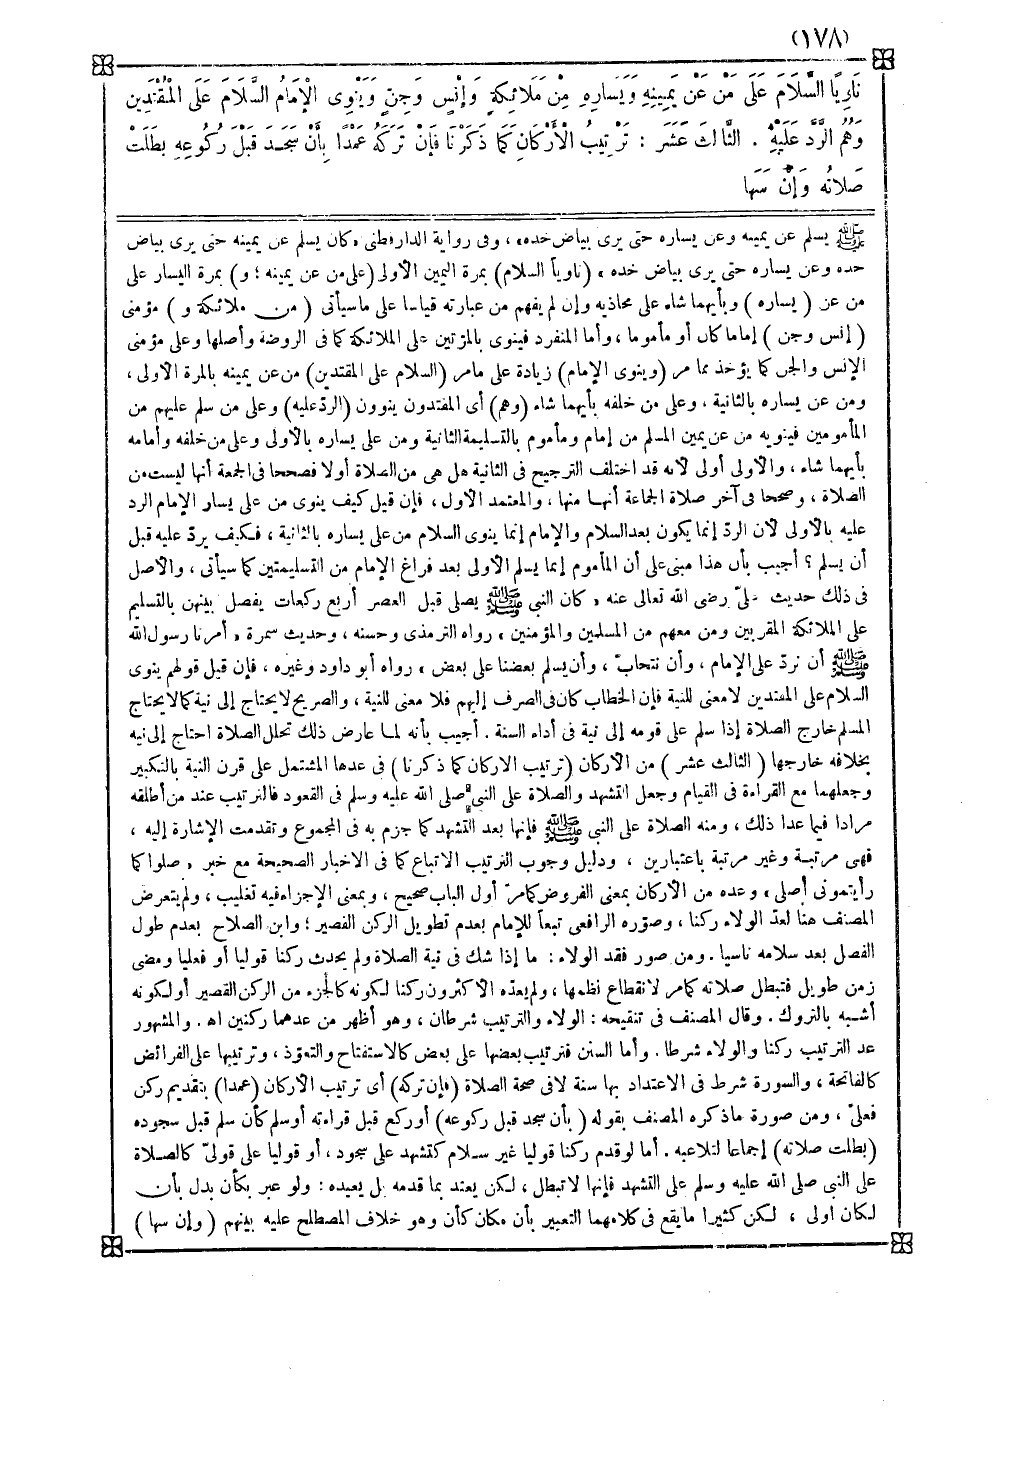 (١٧٨)
نَاوِيًا السَّلَامَ عَلَى مَنْ عَنْ يَمِينِهِ وَيَسَارِهِ مِنْ مَلَائِكَةٍ وَإِنْسٍ وَجِنٍّ وَيَنْوِى الْإِمَامُ السَّلَامَ عَلَى الْمُقْتَدِينَ
وَهُمُ الرَّدَّ عَلَيْهِ . الثَّالِثَ عَشَرَ : تَرْتِيبُ الْأَرْكَانِ كَمَا ذَكَرْنَا فَإِنْ تَرَكَهُ عَمْدًا بِأَنْ سَجَدَ قَبْلَ رُكُوعِهِ بَطَلَتْ
صَلَاتُه وَإِنْ سَهَا
ﷺ يسلم عن يمينه وعن يساره حتى يرى بياض خده» ، وفى رواية الدارقطنى «كان يسلم عن يمينه حتى يرى بياض
خده وعن يساره حتى يرى بياض خده » (ناوياً السلام) بمرة اليمين الأولى (على من عن يمينه ؛ و) بمرة اليسار على
من عن ( يساره ) وبأيهما شاء على محاذيه وإن لم يفهم من عبارته قياسا على ماسيأتى ( من ملائكة و ) مؤمنى
( إنس وجن ) إماما كان أو مأموما ، وأما المنفرد فينوى بالمرّتين على الملائكة كما فى الروضة وأصلها وعلى مؤمنى
الإنس والجن كما يؤخذ مما مر (وينوى الإمام) زيادة على مامر (السلام على المقتدين) من عن يمينه بالمرة الأولى ،
ومن عن يساره بالثانية ، وعلى من خلفه بأيهما شاء (وهم) أى المقتدون ينوون (الردّ عليه) وعلى من سلم عليهم من
المأمومين فينويه من عن يمين المسلم من إمام ومأموم بالتسليمة الثانية ومن على يساره بالأولى وعلى من خلفه وأمامه
بأيهما شاء ، والأولى أولى لأنه قد اختلف الترجيح فى الثانية هل هى من الصلاة أولا فصححا فى الجمعة أنها ليست من
الصلاة ، وصححا فى آخر صلاة الجماعة أنها منها ، والمعتمد الأول ، فإن قيل كيف ينوى من على يسار الإمام الرد
عليه بالأولى لأن الردّ إنما يكون بعد السلام والإمام إنما ينوى السلام من على يساره بالثانية ، فكيف يردّ عليه قبل
أن يسلم ؟ أجيب بأن هذا مبنى على أن المأموم إنما يسلم الأولى بعد فراغ الإمام من التسليمتين كما سيأتى ، والأصل
فى ذلك حديث علىّ رضى الله تعالى عنه « كان النبى ﷺ يصلى قبل العصر أربع ركعات يفصل بينهن بالتسليم
على الملائكة المقربين ومن معهم من المسلمين والمؤمنين » رواه الترمذى وحسنه ، وحديث سمرة « أمرنا رسول الله
ﷺ أن نردّ على الإمام ، وأن نتحابّ ، وأن يسلم بعضنا على بعض » رواه أبو داود وغيره ، فإن قيل قولهم ينوى
السلام على المقتدين لامعنى للنية فإن الخطاب كان فى الصرف إليهم فلا معنى للنية ، والصريح لايحتاج إلى نية كما لايحتاج
المسلم خارج الصلاة إذا سلم على قومه إلى نية فى أداء السنة . أجيب بأنه لما عارض ذلك تحلل الصلاة احتاج إلى نيه
بخلافه خارجها ( الثالث عشر ) من الأركان (ترتيب الأركان كما ذكرنا ) فى عدها المشتمل على قرن النية بالتكبير
وجعلهما مع القراءة فى القيام وجعل التشهد والصلاة على النبى صلى الله عليه وسلم فى القعود فالترتيب عند من أطلقه
مرادا فيما عدا ذلك ، ومنه الصلاة على النبى ﷺ فإنها بعد التشهد كما جزم به فى المجموع وتقدمت الإشارة إليه ،
فهى مرتبة وغير مرتبة باعتبارين ، ودليل وجوب الترتيب الاتباع كما فى الأخبار الصحيحة مع خبر « صلوا كما
رأيتمونى أصلى » وعده من الأركان بمعنى الفروض كما مرّ أول الباب صحيح ، وبمعنى الإجزاء فيه تغليب ، ولم يتعرض
المصنف هنا لعدّ الولاء ركنا ، وصوّره الرافعى تبعاً للإمام بعدم تطويل الركن القصير ؛ وابن الصلاح بعدم طول
الفصل بعد سلامه ناسيا . ومن صور فقد الولاء : ما إذا شك فى نية الصلاة ولم يحدث ركنا قوليا أو فعليا ومضى
زمن طويل فتبطل صلاته كما مر لانقطاع نظمها ، ولم يعدّه الأكثرون ركنا لكونه كالجزء من الركن القصير أو لكونه
أشبه بالتروك . وقال المصنف فى تنقيحه : الولاء والترتيب شرطان ، وهو أظهر من عدهما ركنين اه‍ . والمشهور
عد الترتيب ركنا والولاء شرطا . وأما السنن فترتيب بعضها على بعض كالاستفتاح والتعوّذ ، وترتيبها على الفرائض
كالفاتحة ، والسورة شرط فى الاعتداد بها سنة لافى صحة الصلاة (فإن تركه) أى ترتيب الأركان (عمدا) بتقديم ركن
فعلىّ ، ومن صورة ماذكره المصنف بقوله ( بأن سجد قبل ركوعه) أو ركع قبل قراءته أو سلم كأن سلم قبل سجوده
(بطلت صلاته) إجماعا لتلاعبه . أما لو قدم ركنا قوليا غير سلام كتشهد على سجود ، أو قوليا على قولىّ كالصلاة
على النبى صلى الله عليه وسلم على التشهد فإنها لاتبطل ، لكن يعتد بما قدمه بل يعيده : ولو عبر بكأن بدل بأن
لكان أولى ، لكن كثيرا مايقع فى كلامهما التعبير بأن مكان كأن وهو خلاف المصطلح عليه بينهم ( وإن سها )